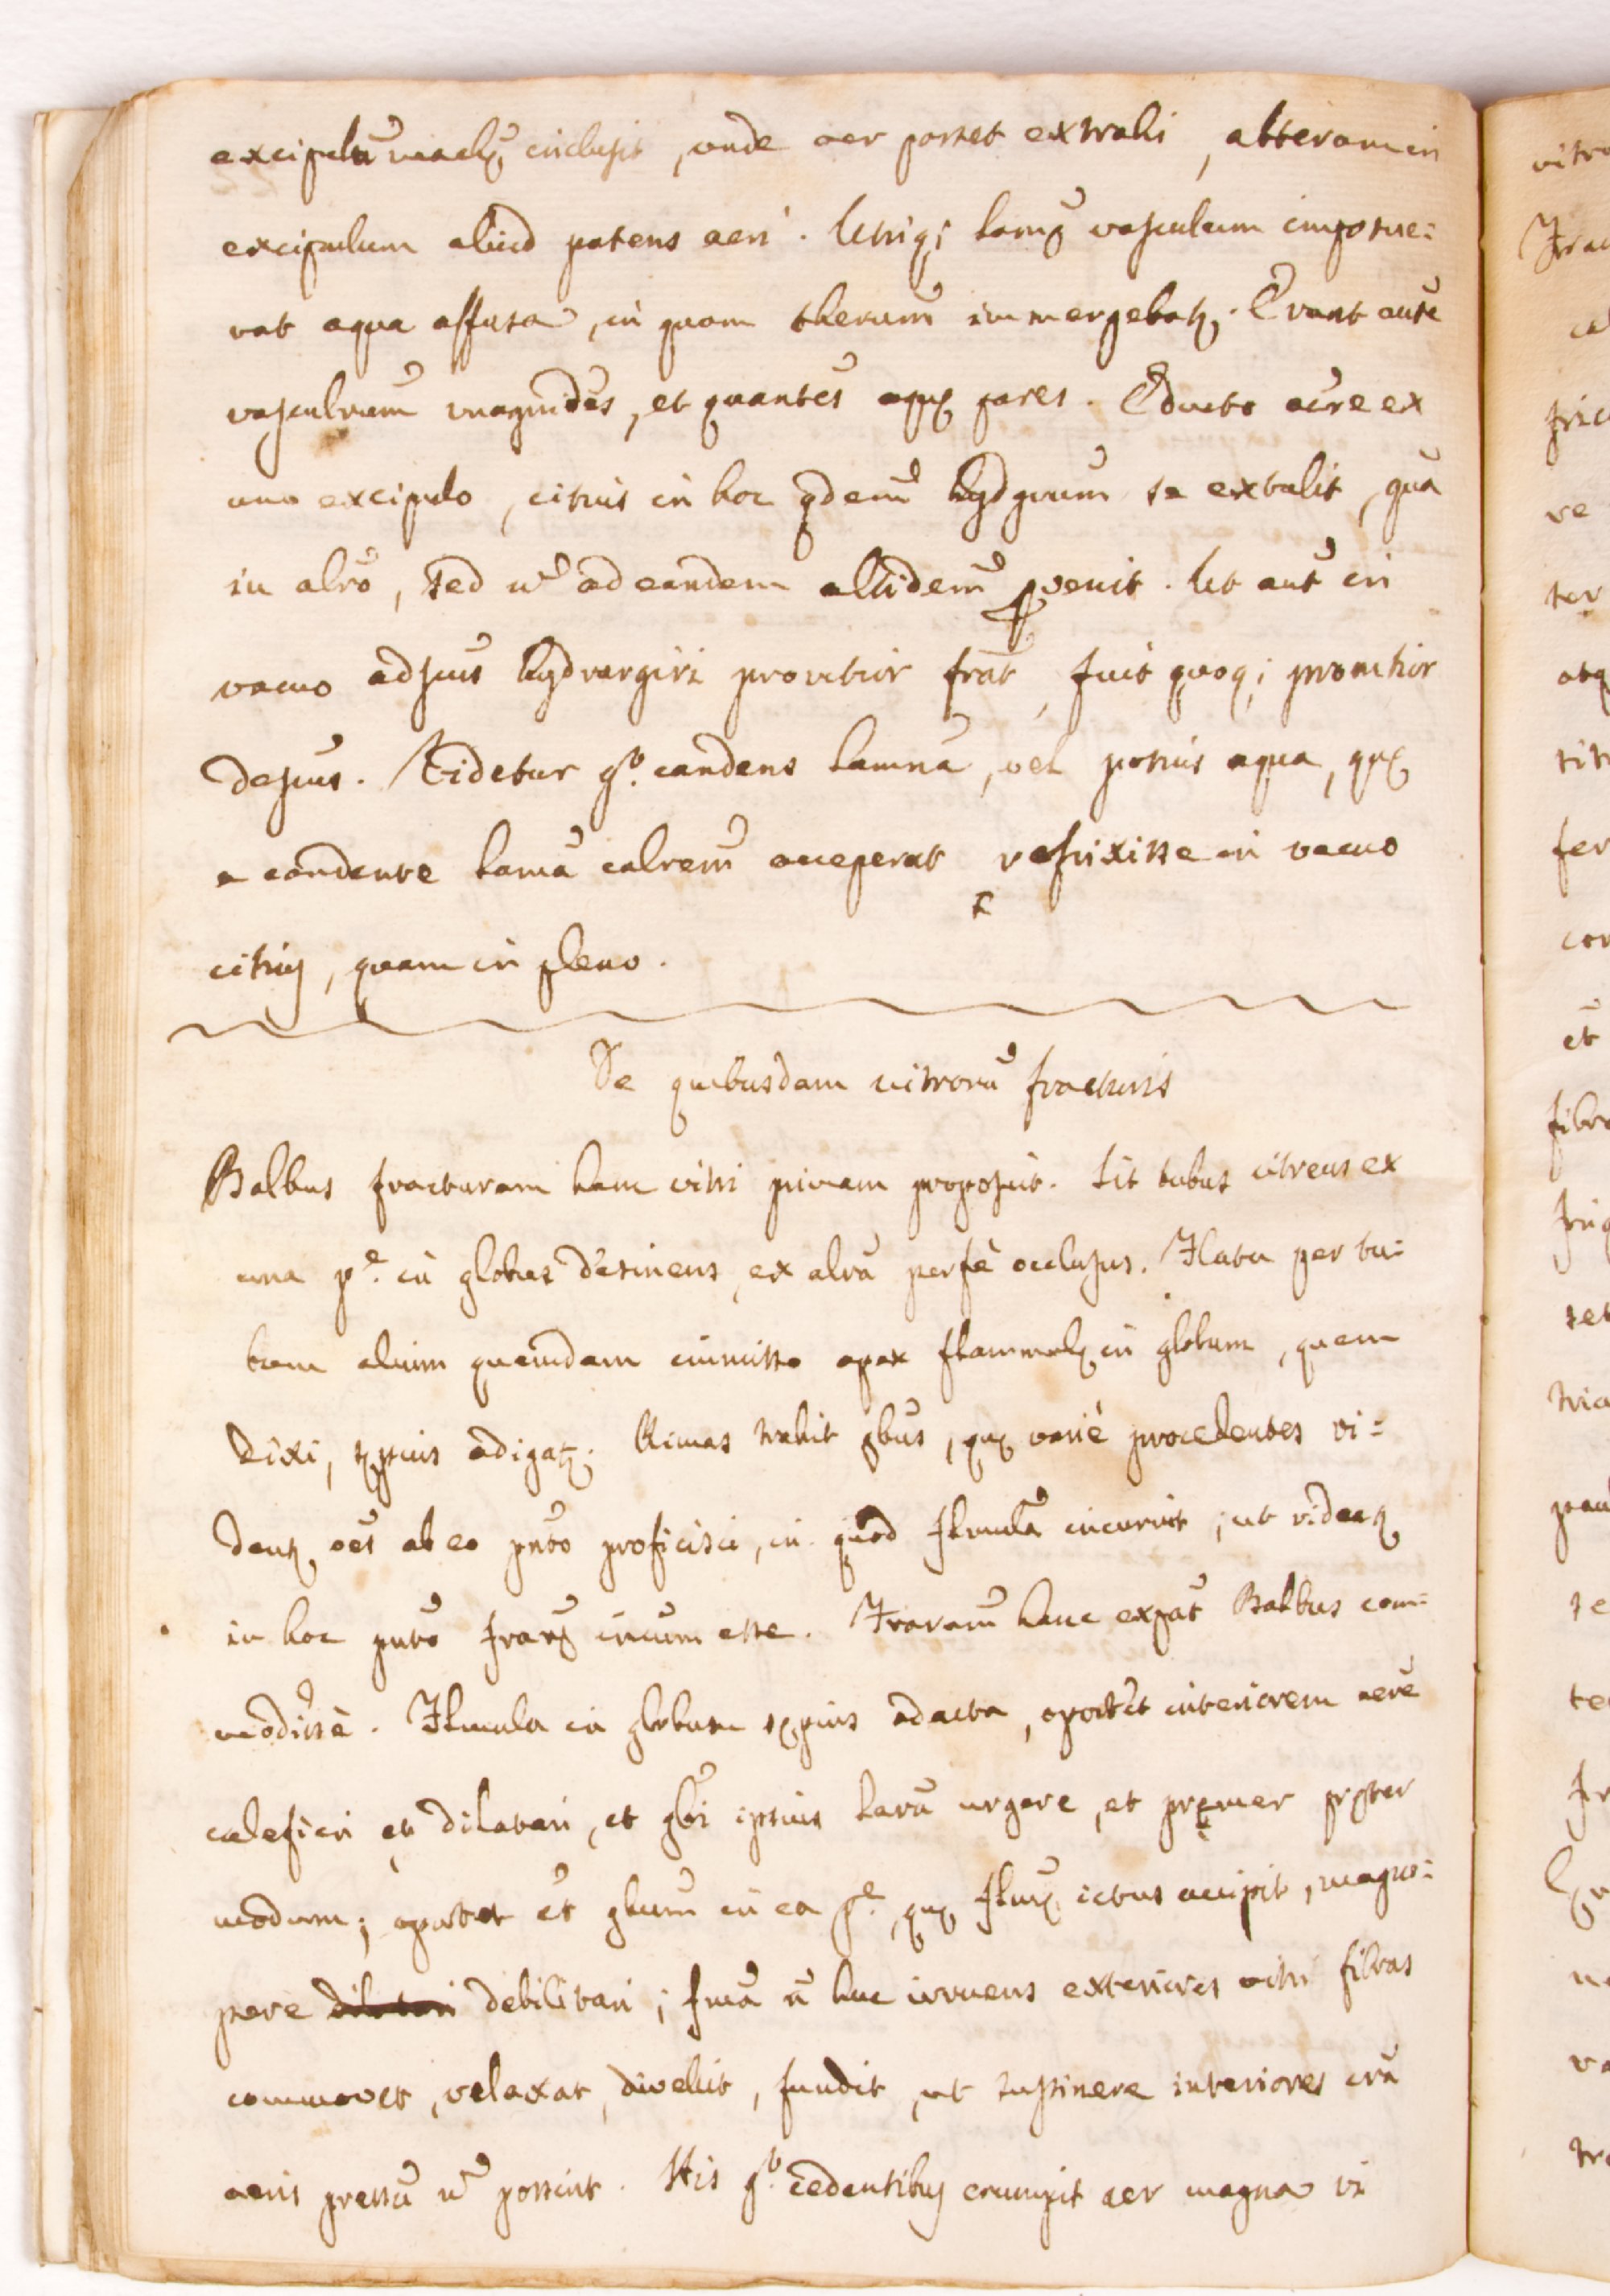 excipulũ inclusit, unde aer posset extrahi, alteram in
excipulum aliud patens aeri. Utriq; lamę vasculum imposue:
rat aqua affusa, in quam therum̃ immergebatꝫ. Erant aute
vasculrum̃ magnidẽs, et quantẽs aquę pares. Educto aẽre ex
uno excipulo, citius in hoc qdem̃ hydgrum̃ se extulit, quã
in alrõ, sed ñ ad eandem altidem̃ pvenit. Ut aut̃ in
vacuo adsus hydrargiri promtior frat, fuit quoq; promtior
desus. Videtur gº. candens lamna, vel potius aqua, quę
a candente lamã calrem̃ acceperat refrixisse in vacuo
citius, quam in pleno.
De quibusdam vitrorũ fracturis
Balbus fracturam hanc vitri primam proposuit. Sit tubus vitreus ex
una pe. in globus desinens, ex alrã perfe occlusus. Flatu per tu:
bum alium quemdam immisso apex flammulę in globum, quem
dixi, sępius adigatꝫ. Rimas trahit gbus, quę varie procedentes vi:
dentꝫ oẽs ab eo pnto proficisci, in quod flmula incurrit; ut videatꝫ
in hoc pnto fraę inium esse. Fraram̃ hanc expat̃ Balbus com:
modisse. Flmula in globum sępius adacta, oportet interiorem aerẽ
calefieri et dilatari, et gbi ipsius lara urgere, et pręmer pręter
modum; oportet et̃ gbum̃ in ea pe. quę flmę ictus accipit, magno:
pere dilatari debilitari; fmã ñ huc irruens exteriores vitri fibras
commovet, relaxat, divellit, fundit, ut sustinere interiores
aeris pressũ ñ possint. His gº. cedentibus erumpit aer magna vi